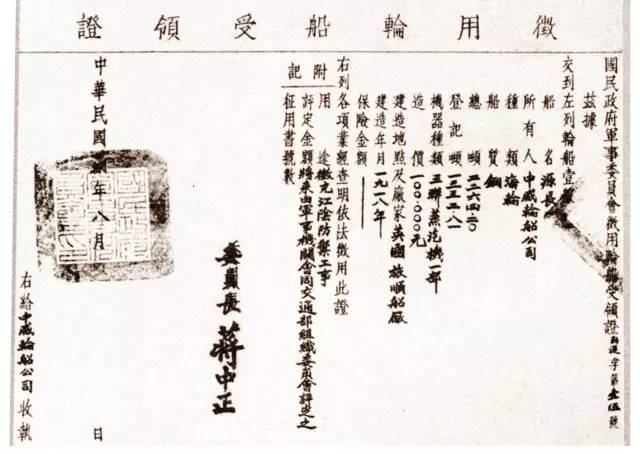 徵用輪船受領證
國民政府軍事委員會徵用輪船受領證
字第壹伍號
茲據
交到左列輪船壹
船名 源長
所有人 中威輪船公司
種類 海輪
船質 鋼
總噸 二二六四·二〇
登記噸 一三五二·八一
機器種類 三聯蒸汽機一部
造價 一〇〇·〇〇〇元
建造地點及廠家 英國 旅順船廠
建造年月 一九一八年
保險金額
右列各項業經查明依法徵用此證
附記
用途 徵充江陰防禦工事
評定金額 將來由軍事機關會同交通部組織委員會評定之
征用書號數
委員長 蔣中正
中華民國 年八月 日
右給中威輪船公司收執